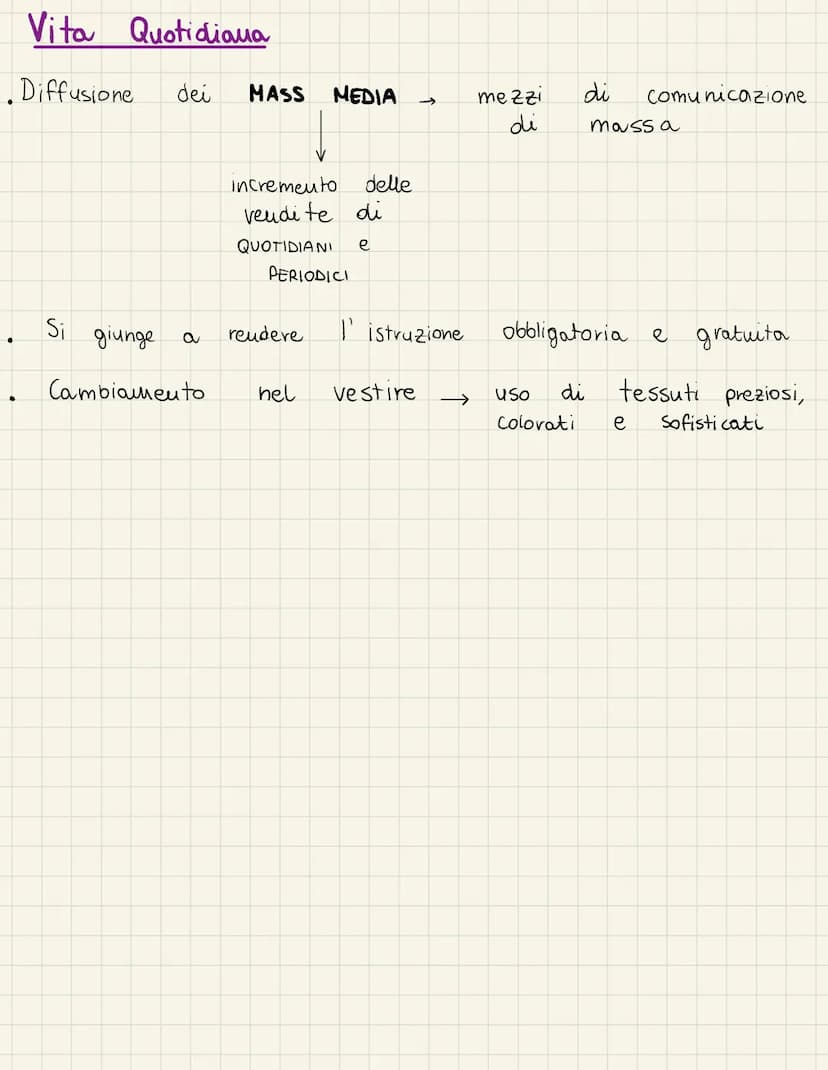 Vita Quotidiana
. Diffusione dei MASS MEDIA → mezzi di comunicazione
di massa
↓
incremento delle
vendite di
QUOTIDIANI e
PERIODICI
. Si giunge a rendere l'istruzione obbligatoria e gratuita
. Cambiamento nel vestire → uso di tessuti preziosi,
colorati e sofisticati